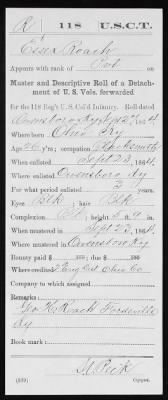 R | 118 | U.S.C.T.
Essex Roach
Appears with rank of Pvt on
Muster and Descriptive Roll of a Detach-
ment of U. S. Vols. forwarded
for the 118 Reg't U.S. Col'd Infantry. Roll dated
Owensboro Ky Sept 27, 1864.
Where born Ohio Ky
Age 26 y'rs; occupation Blacksmith
When enlisted Sept 23, 1864.
Where enlisted Owensboro Ky
For what period enlisted 3 years.
Eyes Blk; hair Blk
Complexion Blk; height 5 ft. 9 in.
When mustered in Sept 23, 1864.
Where mustered in Owensboro Ky
Bounty paid $ 100; due $ 100
Where credited 2 Cong Dist Ohio Co
Company to which assigned
Remarks:
Geo. H. Roach Fordsville
Ky
Book mark:
Peck
(339) Copyist.